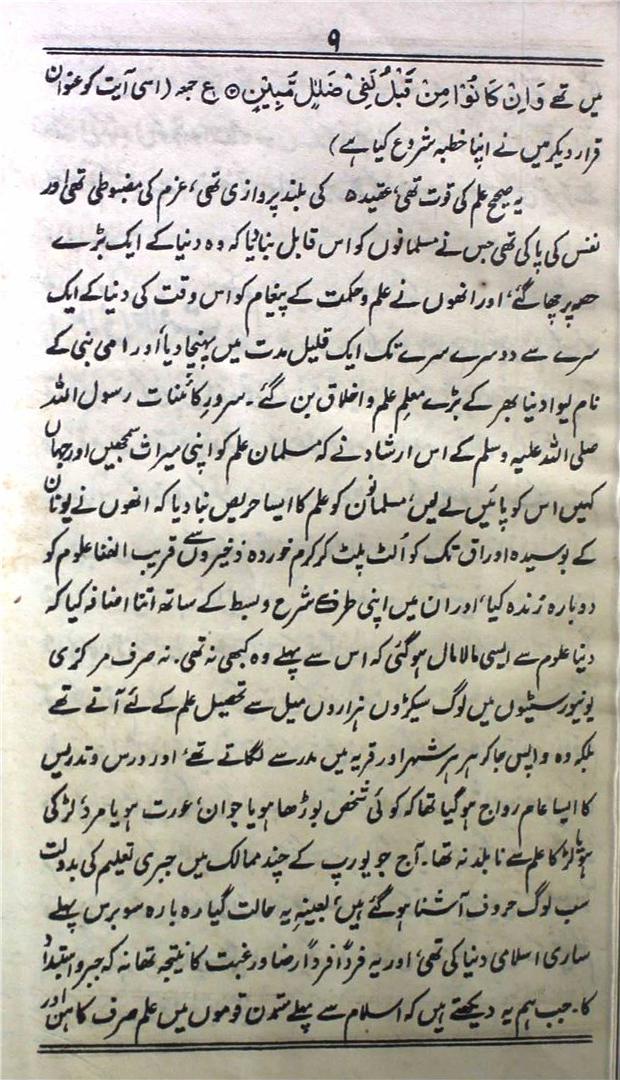 ۹
میں تھے وَاِنْ كَانُوْا مِنْ قَبْلُ لَفِیْ ضَلٰلٍ مُّبِیْنٍ ۝ ع جمعہ (اسی آیت کو عنوان
قرار دیکر میں نے اپنا خطبہ شروع کیا ہے)
یہ صحیح علم کی قوت تھی، عقیدہ کی بلند پروازی تھی، عزم کی مضبوطی تھی اور
نفس کی پاکی تھی جس نے مسلمانوں کو اس قابل بنا دیا کہ وہ دنیا کے ایک بڑے
حصہ پر چھا گئے، اور انھوں نے علم و حکمت کے پیغام کو اس وقت کی دنیا کے ایک
سرے سے دوسرے سرے تک ایک قلیل مدت میں پہنچا دیا اور امی نبی کے
نام لیوا دنیا بھر کے بڑے معلم علم و اخلاق بن گئے۔ سرور کائنات رسول اللہ
صلی اللہ علیہ وسلم کے اس ارشاد نے کہ مسلمان علم کو اپنی میراث سمجھیں اور جہاں
کہیں اس کو پائیں لے لیں، مسلمانوں کو علم کا ایسا حریص بنا دیا کہ انھوں نے یونان
کے بوسیدہ اوراق تک کو اُلٹ پلٹ کر کرم خوردہ ذخیروں سے قریب الفنا علوم کو
دوبارہ زندہ کیا، اور ان میں اپنی طرف شرح و بسط کے ساتھ اتنا اضافہ کیا کہ
دنیا علوم سے ایسی مالا مال ہو گئی کہ اس سے پہلے وہ کبھی نہ تھی۔ نہ صرف مرکزی
یونیورسٹیوں میں لوگ سیکڑوں ہزاروں میل سے تحصیل علم کے لئے آتے تھے
بلکہ وہ واپس جا کر ہر ہر شہر اور قریہ میں مدرسے لگاتے تھے، اور درس و تدریس
کا ایسا عام رواج ہو گیا تھا کہ کوئی شخص بوڑھا ہو یا جوان، عورت ہو یا مرد، لڑکی
ہو یا لڑکا علم سے نابلد نہ تھا۔ آج جو یورپ کے چند ممالک میں جبری تعلیم کی بدولت
سب لوگ حروف آشنا ہو گئے ہیں، بعینہٖ یہ حالت گیارہ بارہ سو برس پہلے
ساری اسلامی دنیا کی تھی، اور یہ فرداً فرداً رضا و رغبت کا نتیجہ تھا نہ کہ جبر و استبداد
کا۔ جب ہم یہ دیکھتے ہیں کہ اسلام سے پہلے متمدن قوموں میں علم صرف کاہن اور